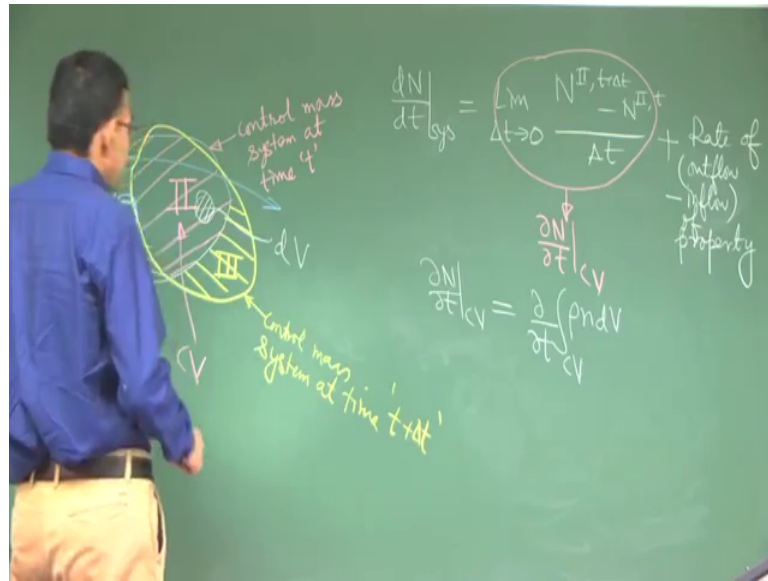 control mass
system at
time 't'
II
III
dV
CV
control mass
system at time 't+Δt'
dN/dt|sys = Lim Δt→0 (N^{II, t+Δt} - N^{II, t})/Δt + Rate of
(outflow
- inflow)
property
∂N/∂t|CV
∂N/∂t|CV = ∂/∂t ∫CV ρndV